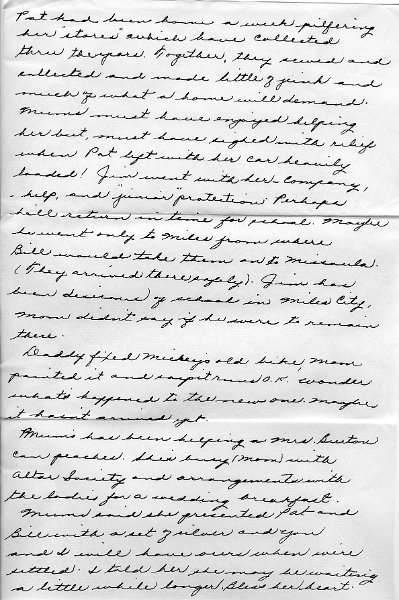 Pat had been home a week pilfering
her "stores" which have collected
thru the years. Together, they sewed and
collected and made little of junk and
much of what a home will demand.
Mums must have enjoyed helping
her but, must have sighed with relief
when Pat left with her car heavily
loaded! Jim went with her - company,
help, and "junior" protection. Perhaps
he'll return in time for school. Maybe
he went only to Miles from where
Bill would take them on to Missoula.
(They arrived there safely). Jim has
been desirous of school in Miles City,
Mom didn't say if he were to remain
there.
Daddy fixed Mickey's old bike, Mom
painted it and says it runs O.K. Wonder
what's happened to the new one. Maybe
it hasn't arrived yet.
Mums has been helping a Mrs. Burton
can peaches. She's busy (Mom) with
Altar Society and arrangements with
the ladies for a wedding breakfast.
Mums said she presented Pat and
Bill with a set of silver and you
and I will have ours when we're
settled. I told her she may be waiting
a little while longer, bless her heart.